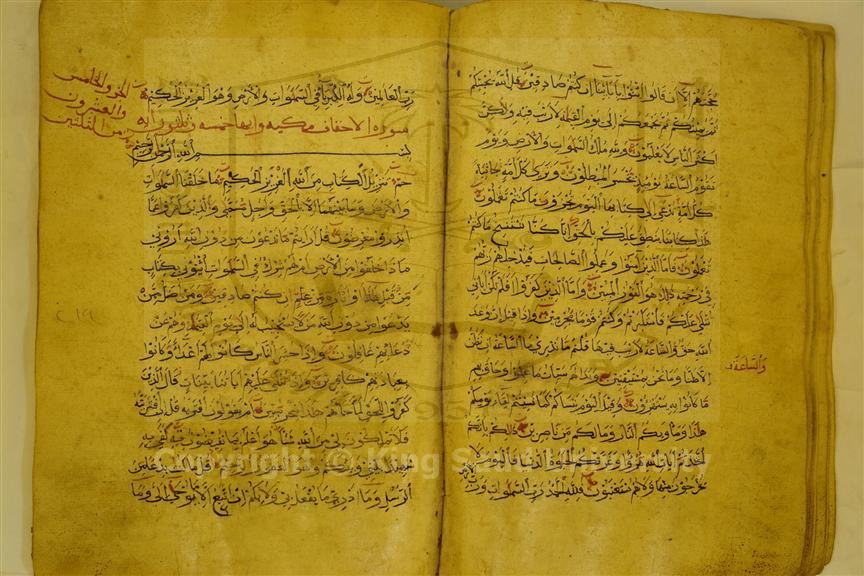 حجتهم إلا أن قالوا ائتوا بآبائنا إن كنتم صادقين قل الله يحييكم
ثم يميتكم ثم يجمعكم إلى يوم القيمة لا ريب فيه ولكن
أكثر الناس لا يعلمون ولله ملك السموات والأرض ويوم
تقوم الساعة يومئذ يخسر المبطلون وترى كل أمة جاثية
كل أمة تدعى إلى كتابها اليوم تجزون ما كنتم تعملون
هذا كتابنا ينطق عليكم بالحق إنا كنا نستنسخ ما كنتم
تعملون فأما الذين آمنوا وعملوا الصالحات فيدخلهم ربهم
في رحمته ذلك هو الفوز المبين وأما الذين كفروا أفلم تكن آياتي
تتلى عليكم فاستكبرتم وكنتم قوما مجرمين وإذا قيل إن وعد
الله حق والساعة لا ريب فيها قلتم ما ندري ما الساعة إن نظن
إلا ظنا وما نحن بمستيقنين وبدا لهم سيئات ما عملوا وحاق بهم
ما كانوا به يستهزؤن وقيل اليوم ننساكم كما نسيتم لقاء يومكم
هذا ومأويكم النار وما لكم من ناصرين ذلكم بأنكم
اتخذتم آيات الله هزوا وغرتكم الحيوة الدنيا فاليوم لا
يخرجون منها ولا هم يستعتبون فلله الحمد رب السموات ورب
والساعة
رب العالمين وله الكبرياء في السموات والأرض وهو العزيز الحكيم
سورة الاحقاف مكية وايها خمسة وثلثون اية
بسم الله الرحمن الرحيم
حم تنزيل الكتاب من الله العزيز الحكيم ما خلقنا السموات
والأرض وما بينهما إلا بالحق وأجل مسمى والذين كفروا عما
أنذروا معرضون قل أرأيتم ما تدعون من دون الله أروني
ماذا خلقوا من الأرض أم لهم شرك في السموات ائتوني بكتاب
من قبل هذا أو أثارة من علم إن كنتم صادقين ومن أضل ممن
يدعوا من دون الله من لا يستجيب له إلى يوم القيمة وهم عن
دعائهم غافلون وإذا حشر الناس كانوا لهم أعداء وكانوا
بعبادتهم كافرين وإذا تتلى عليهم آياتنا بينات قال الذين
كفروا للحق لما جاءهم هذا سحر مبين أم يقولون افتريه قل إن افتريته
فلا تملكون لي من الله شيئا هو أعلم بما تفيضون فيه كفى به
شهيدا بيني وبينكم وهو الغفور الرحيم قل ما كنت بدعا من
الرسل وما أدري ما يفعل بي ولا بكم إن أتبع إلا ما يوحى إلي وما
الجزو الخامس
والعشرون
من الثلثين
٢١٩
Copyright © King Saud University